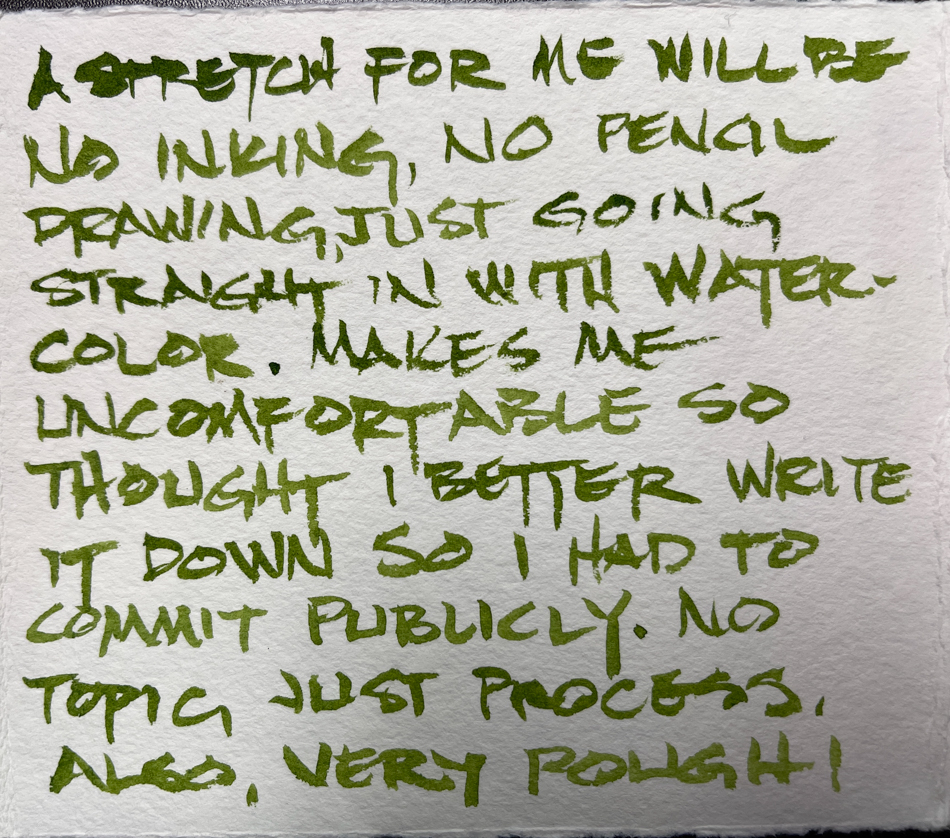 A STRETCH FOR ME WILL BE
NO INKING, NO PENCIL
DRAWING, JUST GOING
STRAIGHT IN WITH WATER-
COLOR. MAKES ME
UNCOMFORTABLE SO
THOUGHT I BETTER WRITE
IT DOWN SO I HAD TO
COMMIT PUBLICLY. NO
TOPIC, JUST PROCESS.
ALSO, VERY ROUGH!